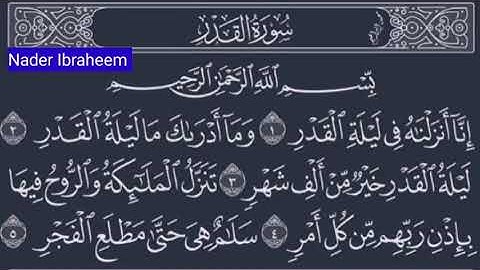 سُورَةُ القَدْرِ
Nader Ibraheem
بِسْمِ اللَّهِ الرَّحْمَٰنِ الرَّحِيمِ
إِنَّا أَنزَلْنَاهُ فِي لَيْلَةِ الْقَدْرِ ١ وَمَا أَدْرَاكَ مَا لَيْلَةُ الْقَدْرِ ٢
لَيْلَةُ الْقَدْرِ خَيْرٌ مِّنْ أَلْفِ شَهْرٍ ٣ تَنَزَّلُ الْمَلَائِكَةُ وَالرُّوحُ فِيهَا
بِإِذْنِ رَبِّهِم مِّن كُلِّ أَمْرٍ ٤ سَلَامٌ هِيَ حَتَّىٰ مَطْلَعِ الْفَجْرِ ٥